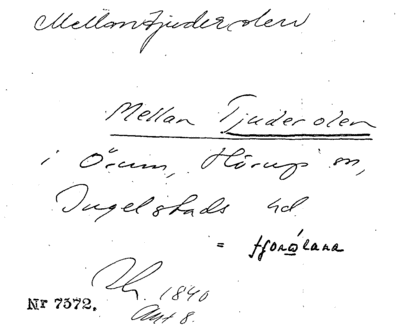 Mellan Tjuderolen
Mellan Tjuderolen
i Örum, Hörups sn,
Ingelstads hd
=
Lh. 1840
Akt 8.
Nr 7572.